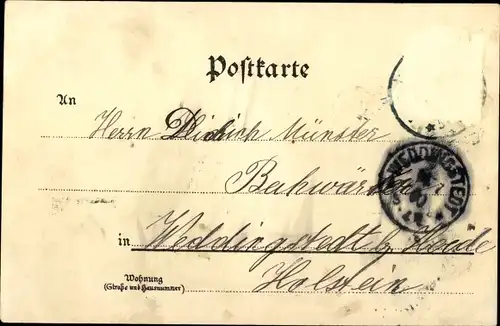 Postkarte
An
Herrn Diedrich Münster
Bahnwärter
in Weddingstedt b. Heide
Holstein
Wohnung
(Straße und Hausnummer)
WEDDINGSTEDT